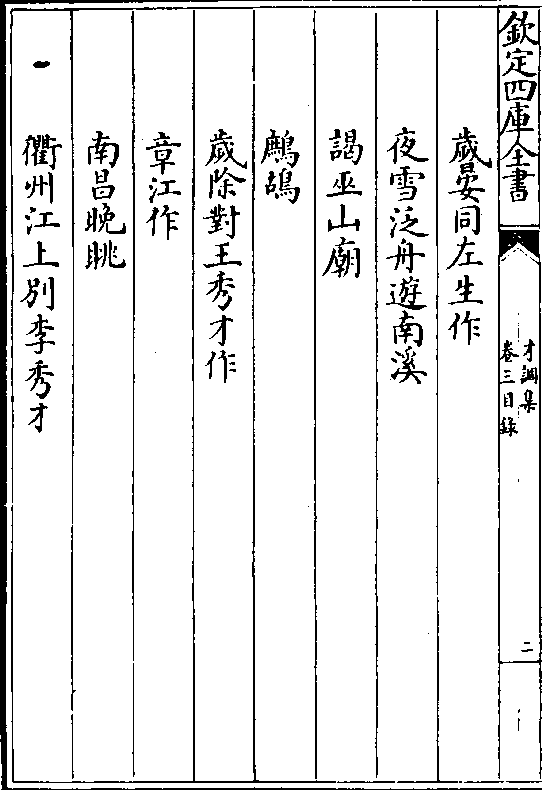 欽定四庫全書
才調集
卷三目錄
二
歲晏同左生作
夜雪泛舟遊南溪
謁巫山廟
鷓鴣
歲除對王秀才作
章江作
南昌晚眺
衢州江上別李秀才